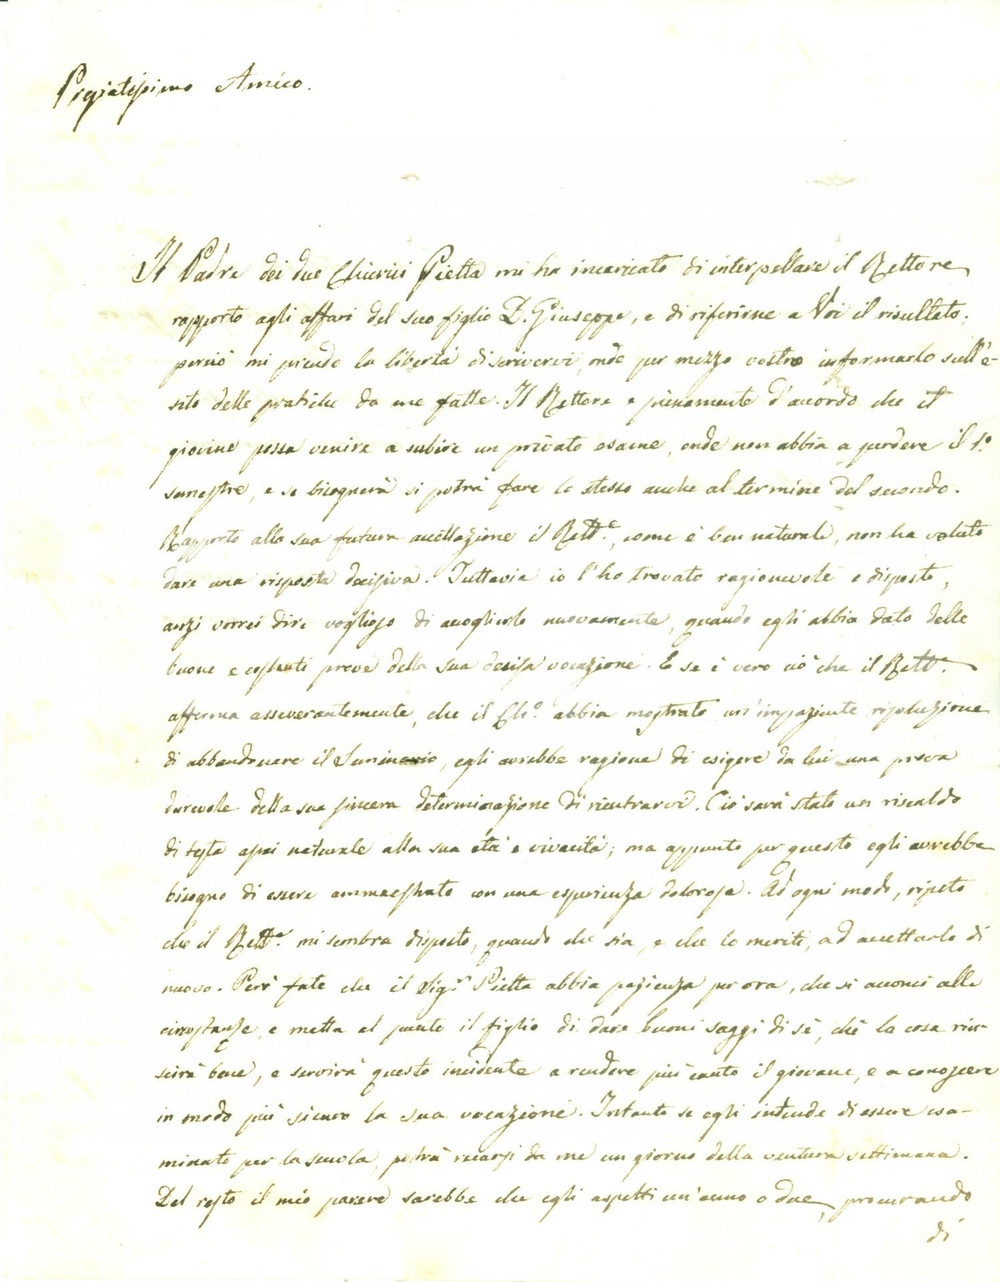 Pregiatissimo Amico.
Il Padre dei due Chierici Pietta mi ha incaricato di interpellare il Rettore
rapporto agli affari del suo figlio D. Giuseppe, e di riferirne a Voi il risultato;
perciò mi prendo la libertà di scrivervi, onde per mezzo vostro informarlo sull'e-
sito delle pratiche da me fatte. Il Rettore è pienamente d'accordo che il
giovine possa venire a subire un privato esame, onde non abbia a perdere il 1.º
semestre, e se bisognerà si potrà fare lo stesso anche al termine del secondo.
Rapporto alla sua futura accettazione il Rett.e, come è ben naturale, non ha voluto
dare una risposta decisiva. Tuttavia io l'ho trovato ragionevole e disposto,
anzi vorrei dire voglioso di accoglierlo nuovamente, quando egli abbia dato delle
buone e costanti prove della sua decisa vocazione. E se è vero ciò che il Rett.e
afferma asseverantemente, che il Ch.º abbia mostrato un'impaziente risoluzione
di abbandonare il Seminario, egli avrebbe ragione di esigere da lui una prova
durevole della sua sincera determinazione di rientrarvi. Ciò sarà stato un riscaldo
di testa assai naturale alla sua età e vivacità; ma appunto per questo egli avrebbe
bisogno di essere ammaestrato con una esperienza dolorosa. Ad ogni modo, ripeto
che il Rett.e mi sembra disposto, quando che sia, e che lo meriti, ad accettarlo di
nuovo. Però fate che il Sig.r Pietta abbia pazienza per ora, che si acconci alle
circostanze, e metta al punto il figlio di dare buoni saggi di sè, chè la cosa riu-
scirà bene, e servirà questo incidente a rendere più cauto il giovane, e a conoscere
in modo più sicuro la sua vocazione. Intanto se egli intende di essere esa-
minato per la scuola, potrà recarsi da me un giorno della ventura settimana.
Del resto il mio parere sarebbe che egli aspetti un'anno o due, procurando
di